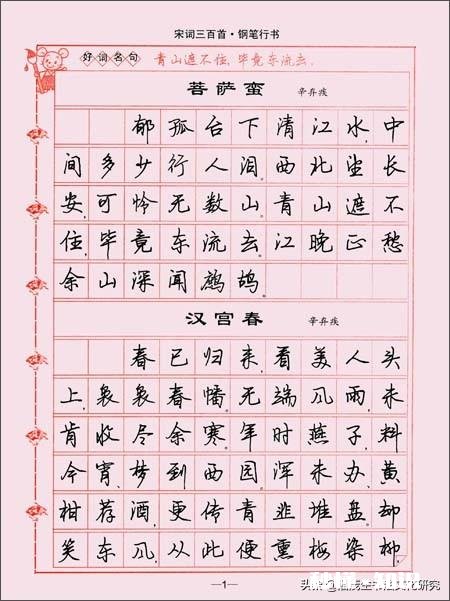 宋词三百首·钢笔行书
好词名句 青山遮不住,毕竟东流去。
菩萨蛮 辛弃疾
郁孤台下清江水,中
间多少行人泪。西北望长
安,可怜无数山。青山遮不
住,毕竟东流去。江晚正愁
余,山深闻鹧鸪。
汉宫春 辛弃疾
春已归来,看美人头
上,袅袅春幡。无端风雨,未
肯收尽余寒。年时燕子,料
今宵、梦到西园。浑未办、黄
柑荐酒,更传青韭堆盘。却
笑东风,从此便熏梅染柳,
—1—
头条@ 文化研究